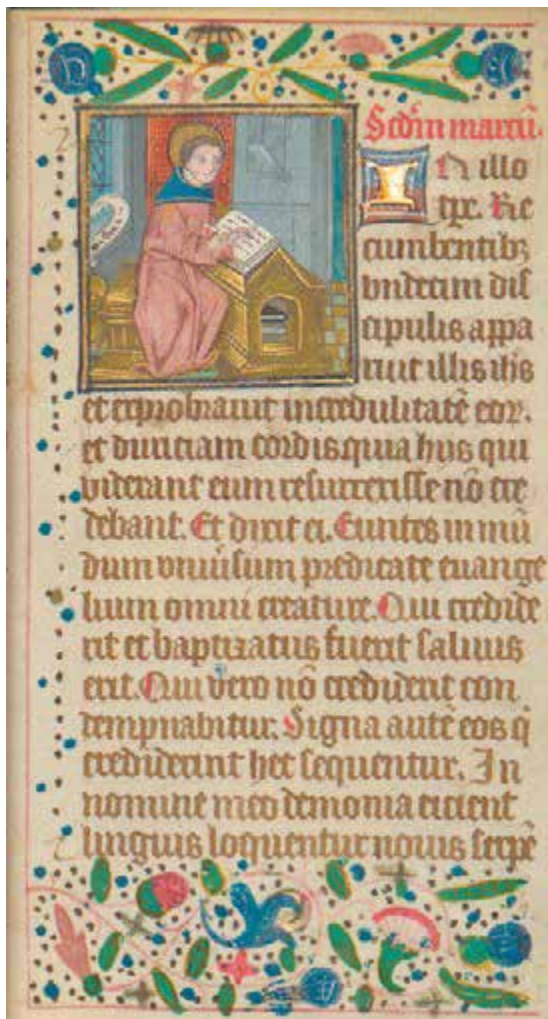 Scd̄m marcū.
In illo
tpr. Re
cūmbentibꝫ
vndecim dis
cipulis appa
ruit illis ihs
et exprobrauit incredulitatē eoꝝ.
et duriciam cordis quia hijs qui
viderant eum resurrexisse nō cre
debant. Et dixit ei. Euntes in mū
dum vniuersum predicate euange
lium omni creature. Qui credide
rit et baptizatus fuerit saluus
erit. Qui vero nō crediderit con
dempnabitur. Signa autē eos q̄
crediderint hec sequentur. In
nomine meo demonia eicient
linguis loquentur nouis serpē